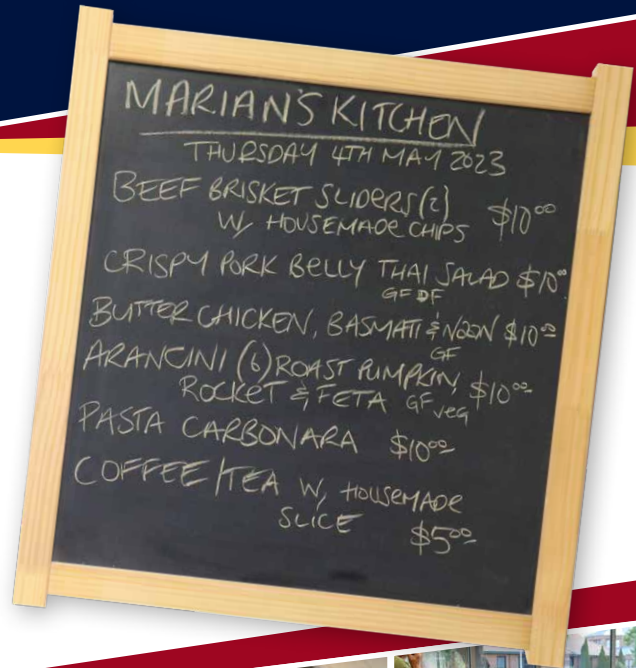 MARIAN'S KITCHEN
THURSDAY 4TH MAY 2023
BEEF BRISKET SLIDERS (2) $10.00
W/ HOUSEMADE CHIPS
CRISPY PORK BELLY THAI SALAD $10.00
GF DF
BUTTER CHICKEN, BASMATI & NAAN $10.00
GF
ARANCINI (6) ROAST PUMPKIN,
ROCKET & FETA GF veg $10.00
PASTA CARBONARA $10.00
COFFEE/TEA W/ HOUSEMADE
SLICE $5.00